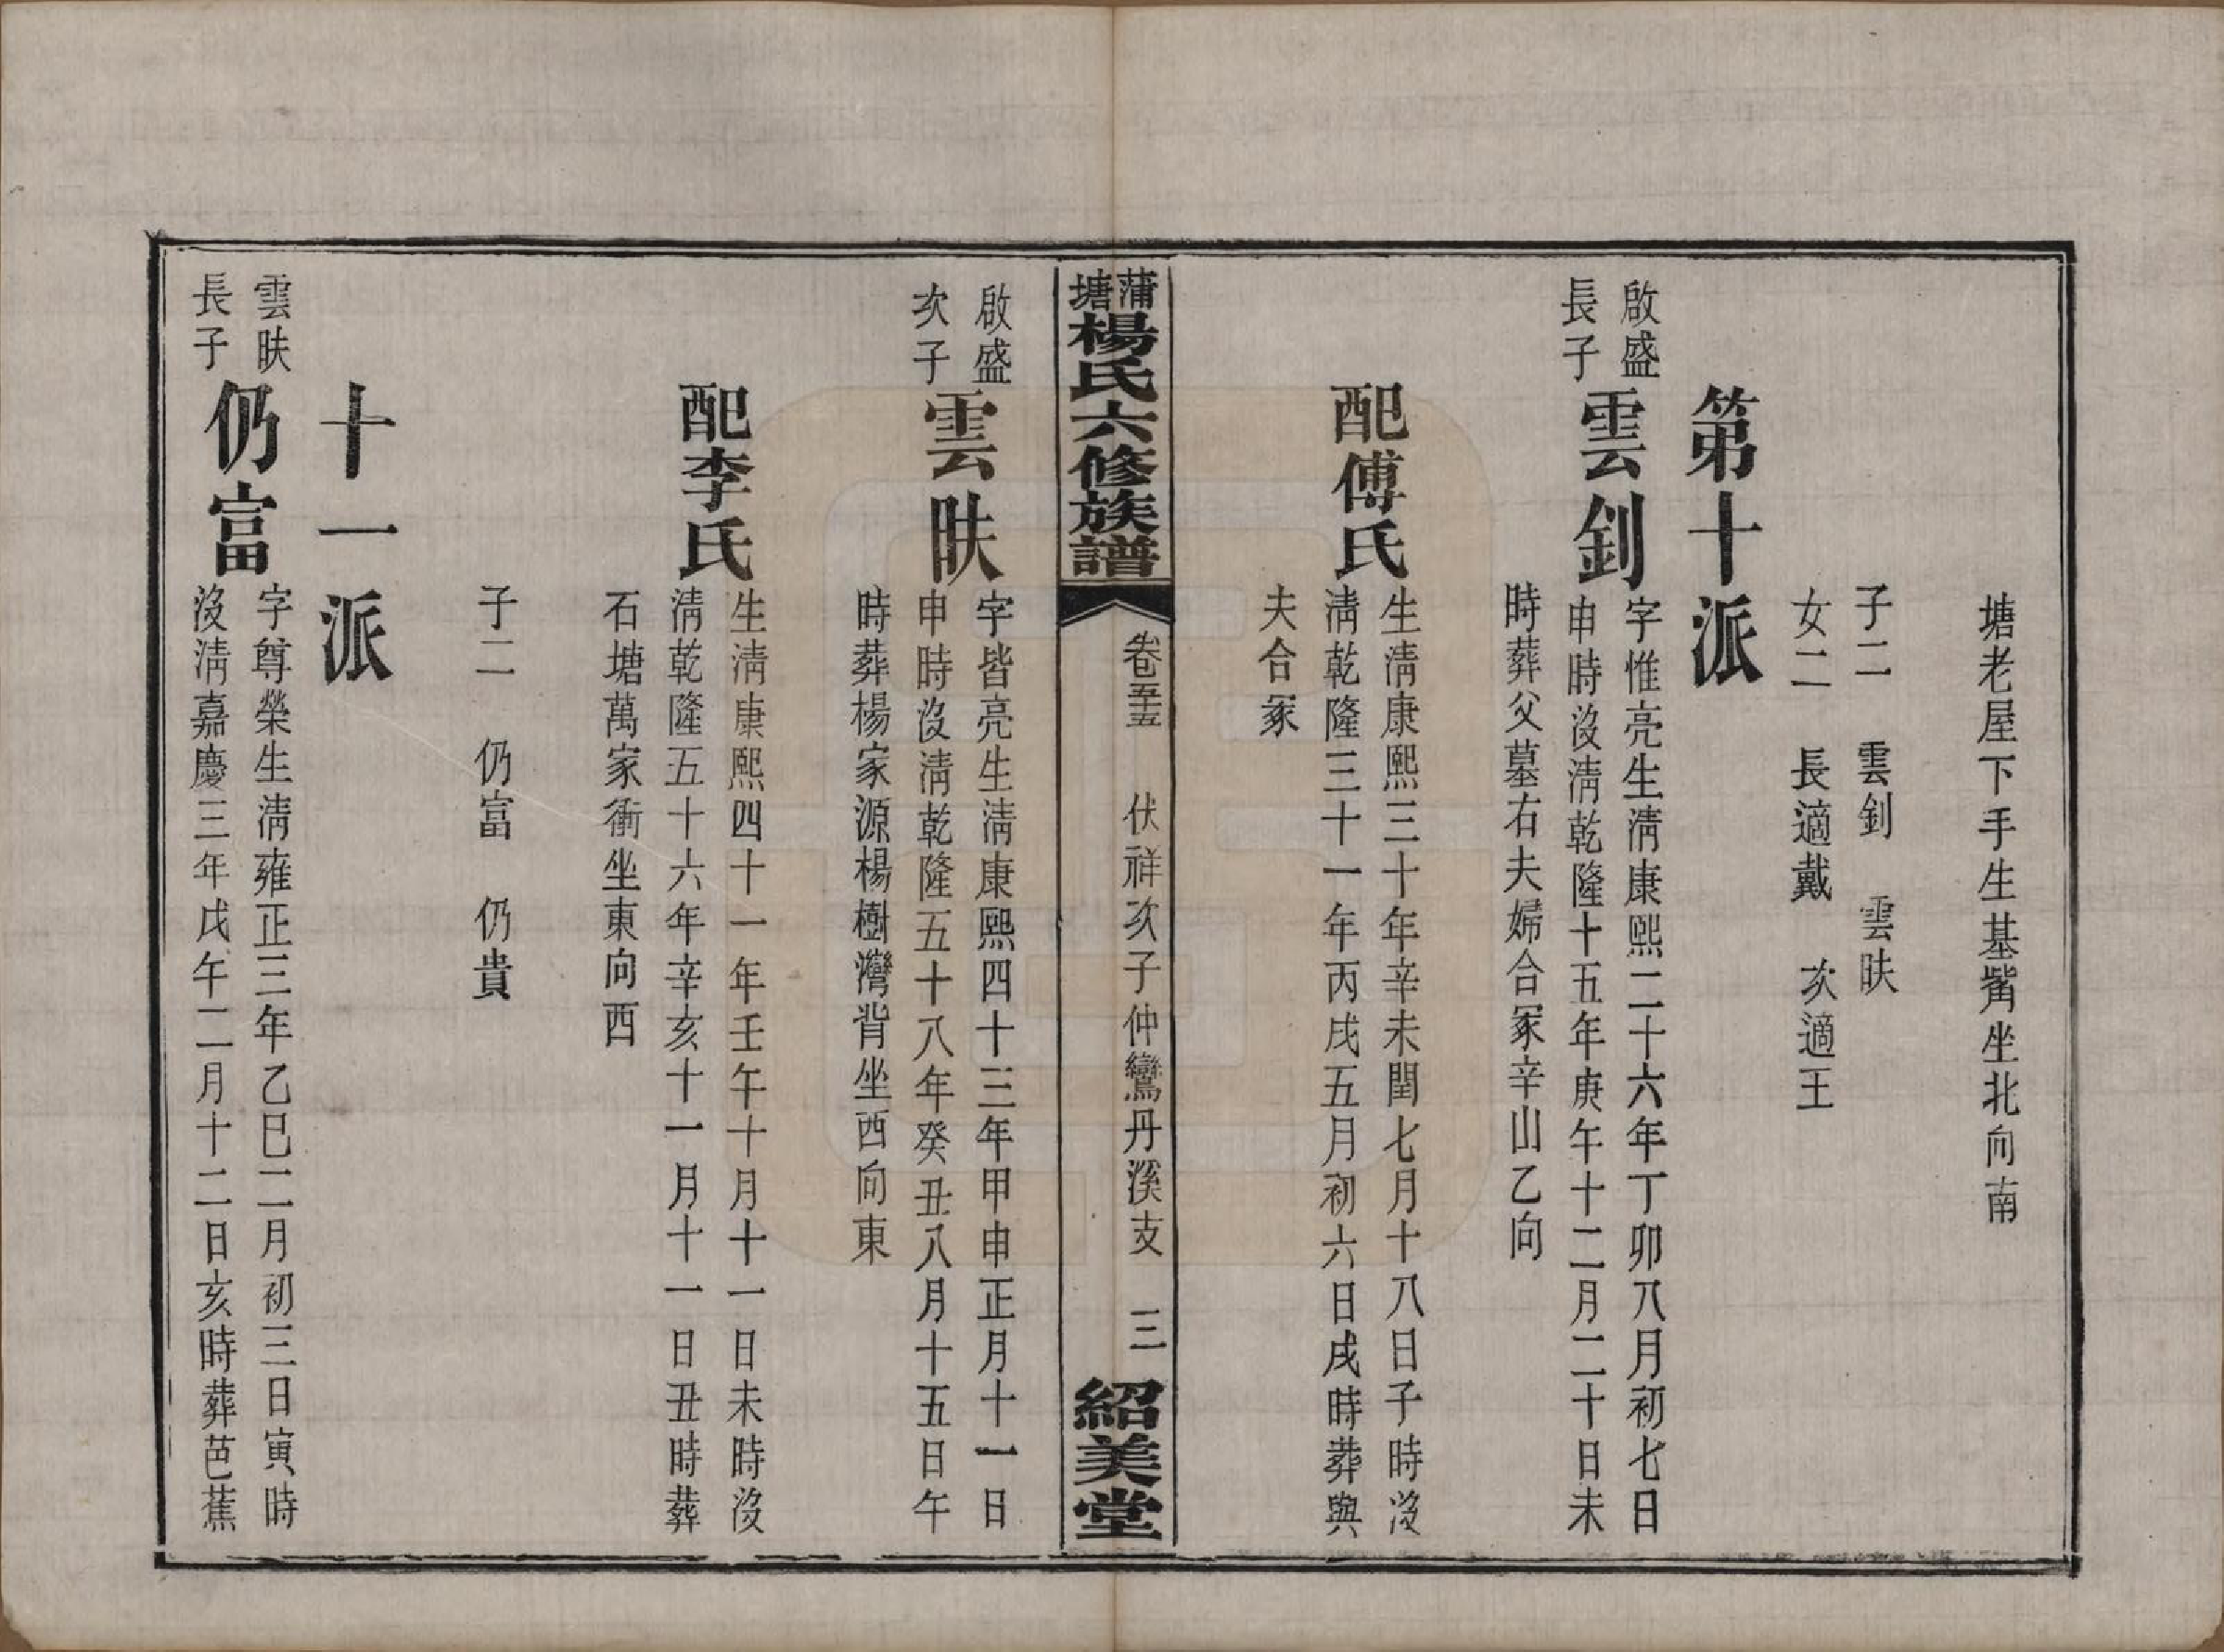 塘老屋下手生基嘴坐北向南
子二 雲釗 雲昳
女二 長適戴 次適王
第十派
啟盛
長子
雲釗
字惟亮生清康熙二十六年丁卯八月初七日
申時沒清乾隆十五年庚午十二月二十日未
時葬父墓右夫婦合冢辛山乙向
配傅氏
生清康熙三十年辛未閏七月十八日子時沒
清乾隆三十一年丙戌五月初六日戌時葬與
夫合冢
蒲塘楊氏六修族譜
卷五十五 伏祥次子仲鸞丹溪支 三
紹美堂
啟盛
次子
雲昳
字皆亮生清康熙四十三年甲申正月十一日
申時沒清乾隆五十八年癸丑八月十五日午
時葬楊家源楊樹灣背坐西向東
配李氏
生清康熙四十一年壬午十月十一日未時沒
清乾隆五十六年辛亥十一月十一日丑時葬
石塘萬家衝坐東向西
子二 仍富 仍貴
十一派
雲昳
長子
仍富
字尊榮生清雍正三年乙巳二月初三日寅時
沒清嘉慶三年戊午二月十二日亥時葬芭蕉